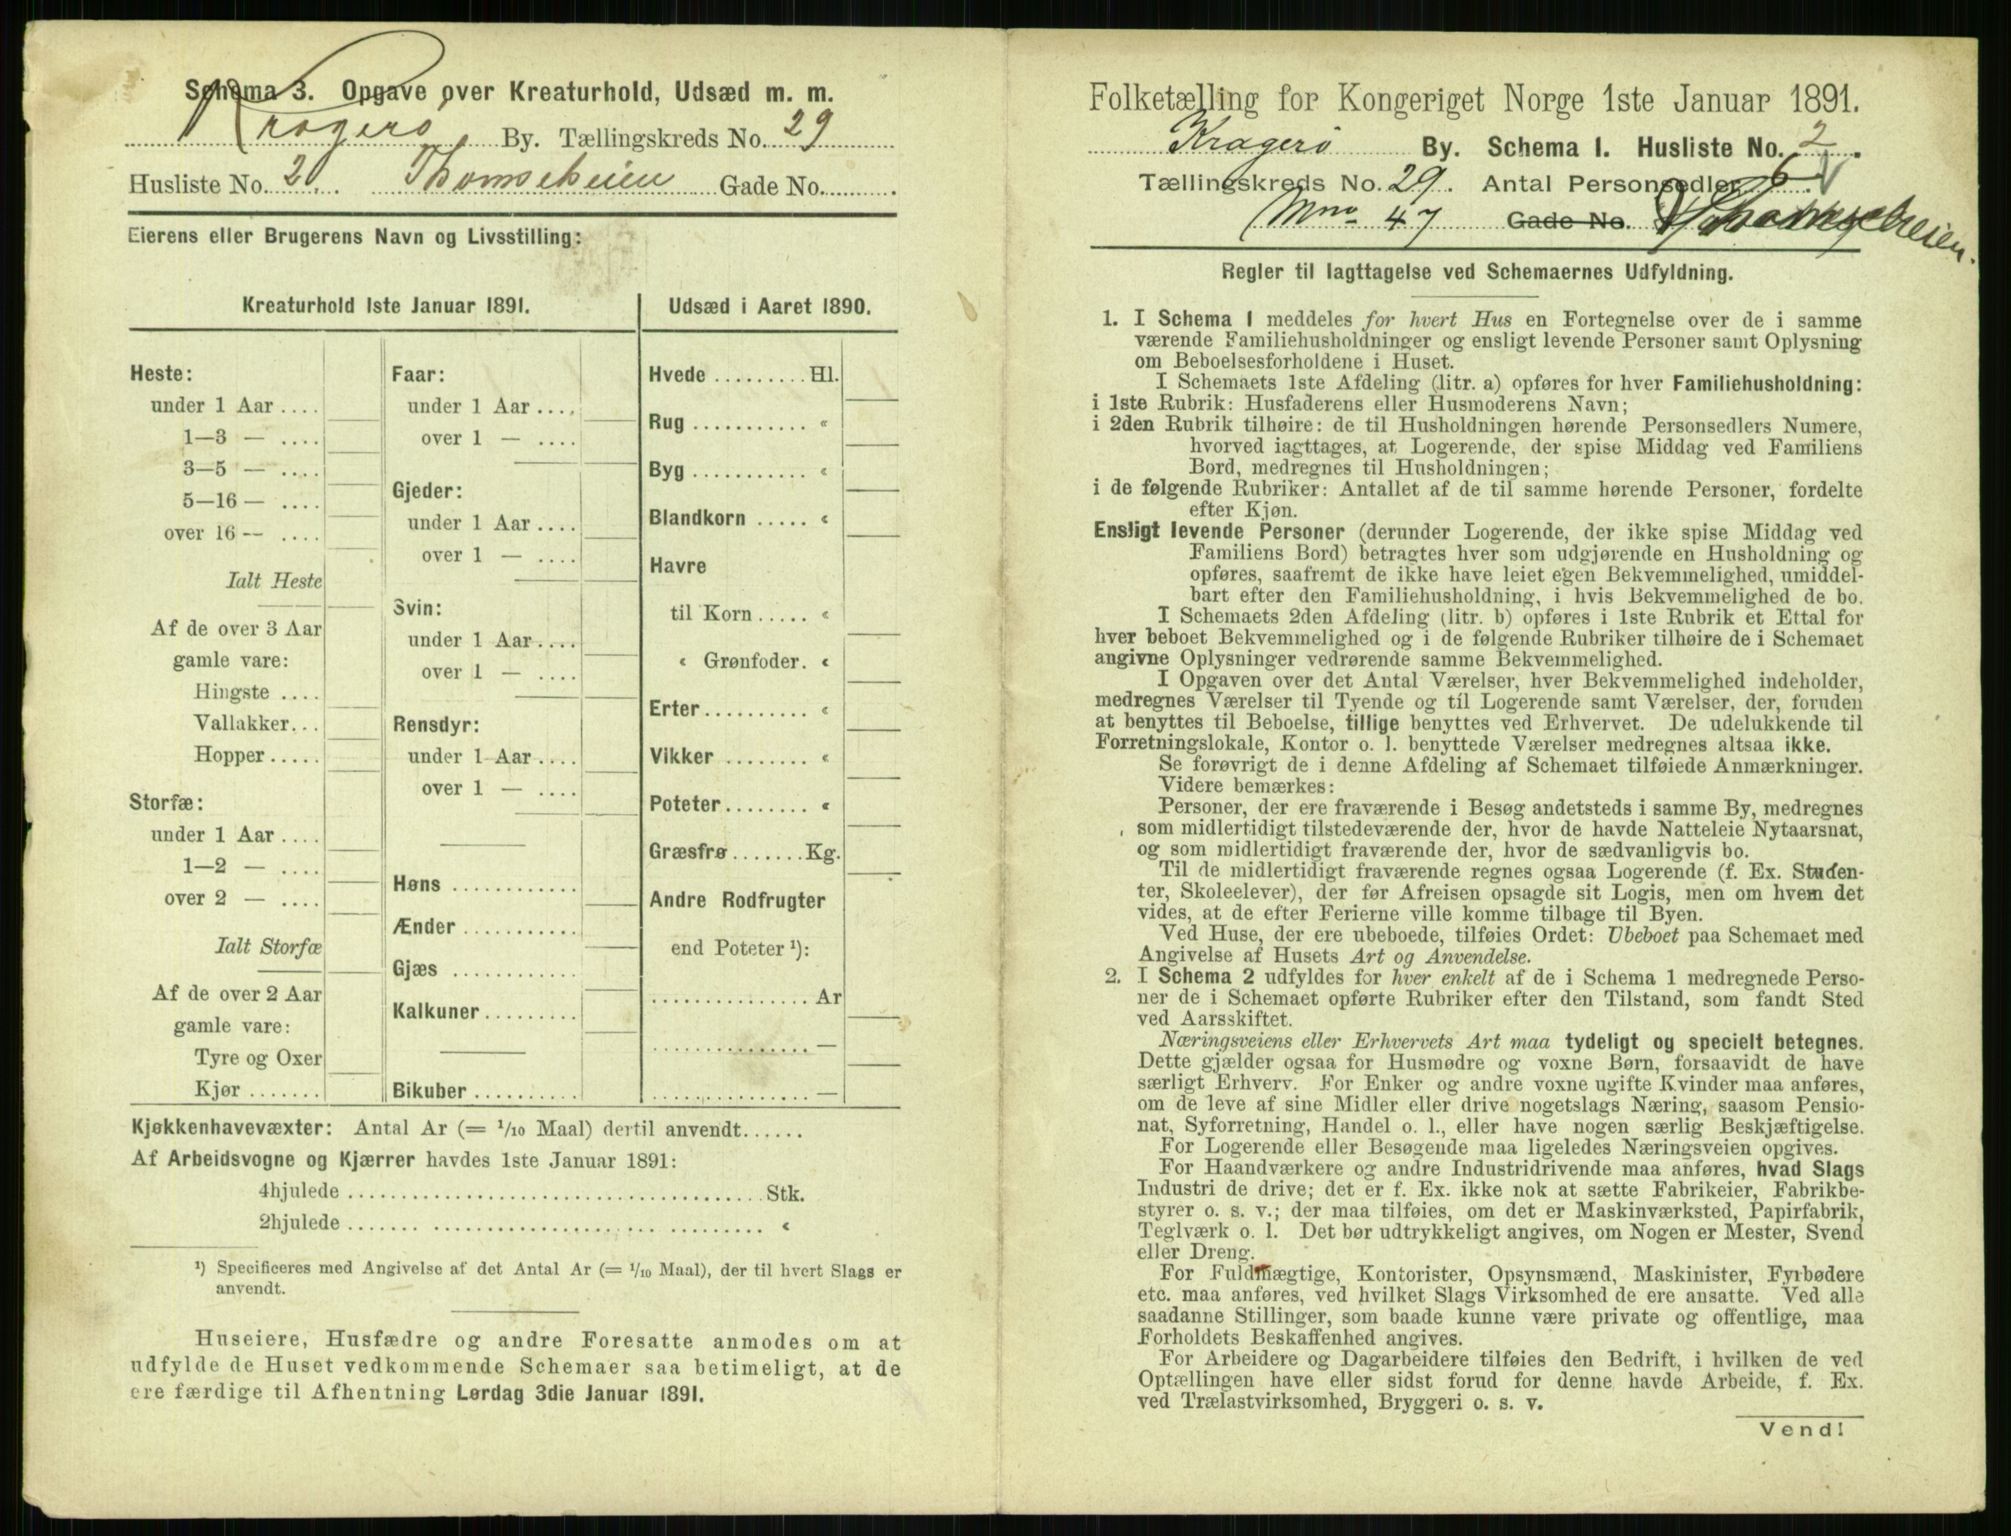 Schema 3. Opgave over Kreaturhold, Udsæd m. m.
Kragerø By. Tællingskreds No. 29
Husliste No. 2. Thomseheien Gade No.
Eierens eller Brugerens Navn og Livsstilling:
Kreaturhold 1ste Januar 1891.
Heste:
under 1 Aar ....
1—3 — ....
3—5 — ....
5—16 — ....
over 16 — ....
Ialt Heste
Af de over 3 Aar
gamle vare:
Hingste ....
Vallakker...
Hopper.....
Storfæ:
under 1 Aar ....
1—2 — ....
over 2 — ....
Ialt Storfæ
Af de over 2 Aar
gamle vare:
Tyre og Oxer
Kjør .......
Faar:
under 1 Aar ....
over 1 — ....
Gjeder:
under 1 Aar ....
over 1 — ....
Svin:
under 1 Aar ....
over 1 — ....
Rensdyr:
under 1 Aar ....
over 1 — ....
Høns ............
Ænder ...........
Gjæs ............
Kalkuner.........
Bikuber ..........
Udsæd i Aaret 1890.
Hvede .........Hl.
Rug ........... «
Byg ........... «
Blandkorn ..... «
Havre
til Korn ..... «
« Grønfoder. «
Erter.......... «
Vikker ........ «
Poteter........ «
Græsfrø .......Kg.
Andre Rodfrugter
end Poteter ¹):
............... Ar
............... —
............... —
Kjøkkenhavevæxter: Antal Ar (= 1/10 Maal) dertil anvendt......
Af Arbeidsvogne og Kjærrer havdes 1ste Januar 1891:
4hjulede ........................................Stk.
2hjulede ........................................ «
¹) Specificeres med Angivelse af det Antal Ar (= 1/10 Maal), der til hvert Slags er
anvendt.
Huseiere, Husfædre og andre Foresatte anmodes om at
udfylde de Huset vedkommende Schemaer saa betimeligt, at de
ere færdige til Afhentning Lørdag 3die Januar 1891.
Folketælling for Kongeriget Norge 1ste Januar 1891.
Kragerø By. Schema I. Husliste No. 2.
Tællingskreds No. 29. Antal Personsedler 6.
Mno 47 Gade No. Thomseheien.
Regler til Iagttagelse ved Schemaernes Udfyldning.
1. I Schema I meddeles for hvert Hus en Fortegnelse over de i samme
værende Familiehusholdninger og ensligt levende Personer samt Oplysning
om Beboelsesforholdene i Huset.
I Schemaets 1ste Afdeling (litr. a) opføres for hver Familiehusholdning:
i 1ste Rubrik: Husfaderens eller Husmoderens Navn;
i 2den Rubrik tilhøire: de til Husholdningen hørende Personsedlers Numere,
hvorved iagttages, at Logerende, der spise Middag ved Familiens
Bord, medregnes til Husholdningen;
i de følgende Rubriker: Antallet af de til samme hørende Personer, fordelte
efter Kjøn.
Ensligt levende Personer (derunder Logerende, der ikke spise Middag ved
Familiens Bord) betragtes hver som udgjørende en Husholdning og
opføres, saafremt de ikke have leiet egen Bekvemmelighed, umiddel-
bart efter den Familiehusholdning, i hvis Bekvemmelighed de bo.
I Schemaets 2den Afdeling (litr. b) opføres i 1ste Rubrik et Ettal for
hver beboet Bekvemmelighed og i de følgende Rubriker tilhøire de i Schemaet
angivne Oplysninger vedrørende samme Bekvemmelighed.
I Opgaven over det Antal Værelser, hver Bekvemmelighed indeholder,
medregnes Værelser til Tyende og til Logerende samt Værelser, der, foruden
at benyttes til Beboelse, tillige benyttes ved Erhvervet. De udelukkende til
Forretningslokale, Kontor o. l. benyttede Værelser medregnes altsaa ikke.
Se forøvrigt de i denne Afdeling af Schemaet tilføiede Anmærkninger.
Videre bemærkes:
Personer, der ere fraværende i Besøg andetsteds i samme By, medregnes
som midlertidigt tilstedeværende der, hvor de havde Natteleie Nytaarsnat,
og som midlertidigt fraværende der, hvor de sædvanligvis bo.
Til de midlertidigt fraværende regnes ogsaa Logerende (f. Ex. Studen-
ter, Skoleelever), der før Afreisen opsagde sit Logis, men om hvem det
vides, at de efter Ferierne ville komme tilbage til Byen.
Ved Huse, der ere ubeboede, tilføies Ordet: Ubeboet paa Schemaet med
Angivelse af Husets Art og Anvendelse.
2. I Schema 2 udfyldes for hver enkelt af de i Schema 1 medregnede Perso-
ner de i Schemaet opførte Rubriker efter den Tilstand, som fandt Sted
ved Aarsskiftet.
Næringsveiens eller Erhvervets Art maa tydeligt og specielt betegnes.
Dette gjælder ogsaa for Husmødre og voxne Børn, forsaavidt de have
særligt Erhverv. For Enker og andre voxne ugifte Kvinder maa anføres,
om de leve af sine Midler eller drive nogetslags Næring, saasom Pensio-
nat, Syforretning, Handel o. l., eller have nogen særlig Beskjæftigelse.
For Logerende eller Besøgende maa ligeledes Næringsveien opgives.
For Haandværkere og andre Industridrivende maa anføres, hvad Slags
Industri de drive; det er f. Ex. ikke nok at sætte Fabrikeier, Fabrikbe-
styrer o. s. v.; der maa tilføies, om det er Maskinværksted, Papirfabrik,
Teglværk o. l. Det bør udtrykkeligt angives, om Nogen er Mester, Svend
eller Dreng.
For Fuldmægtige, Kontorister, Opsynsmænd, Maskinister, Fyrbødere
etc. maa anføres, ved hvilket Slags Virksomhed de ere ansatte. Ved alle
saadanne Stillinger, som baade kunne være private og offentlige, maa
Forholdets Beskaffenhed angives.
For Arbeidere og Dagarbeidere tilføies den Bedrift, i hvilken de ved
Optællingen have eller sidst forud for denne havde Arbeide, f. Ex.
ved Trælastvirksomhed, Bryggeri o. s. v.
Vend!